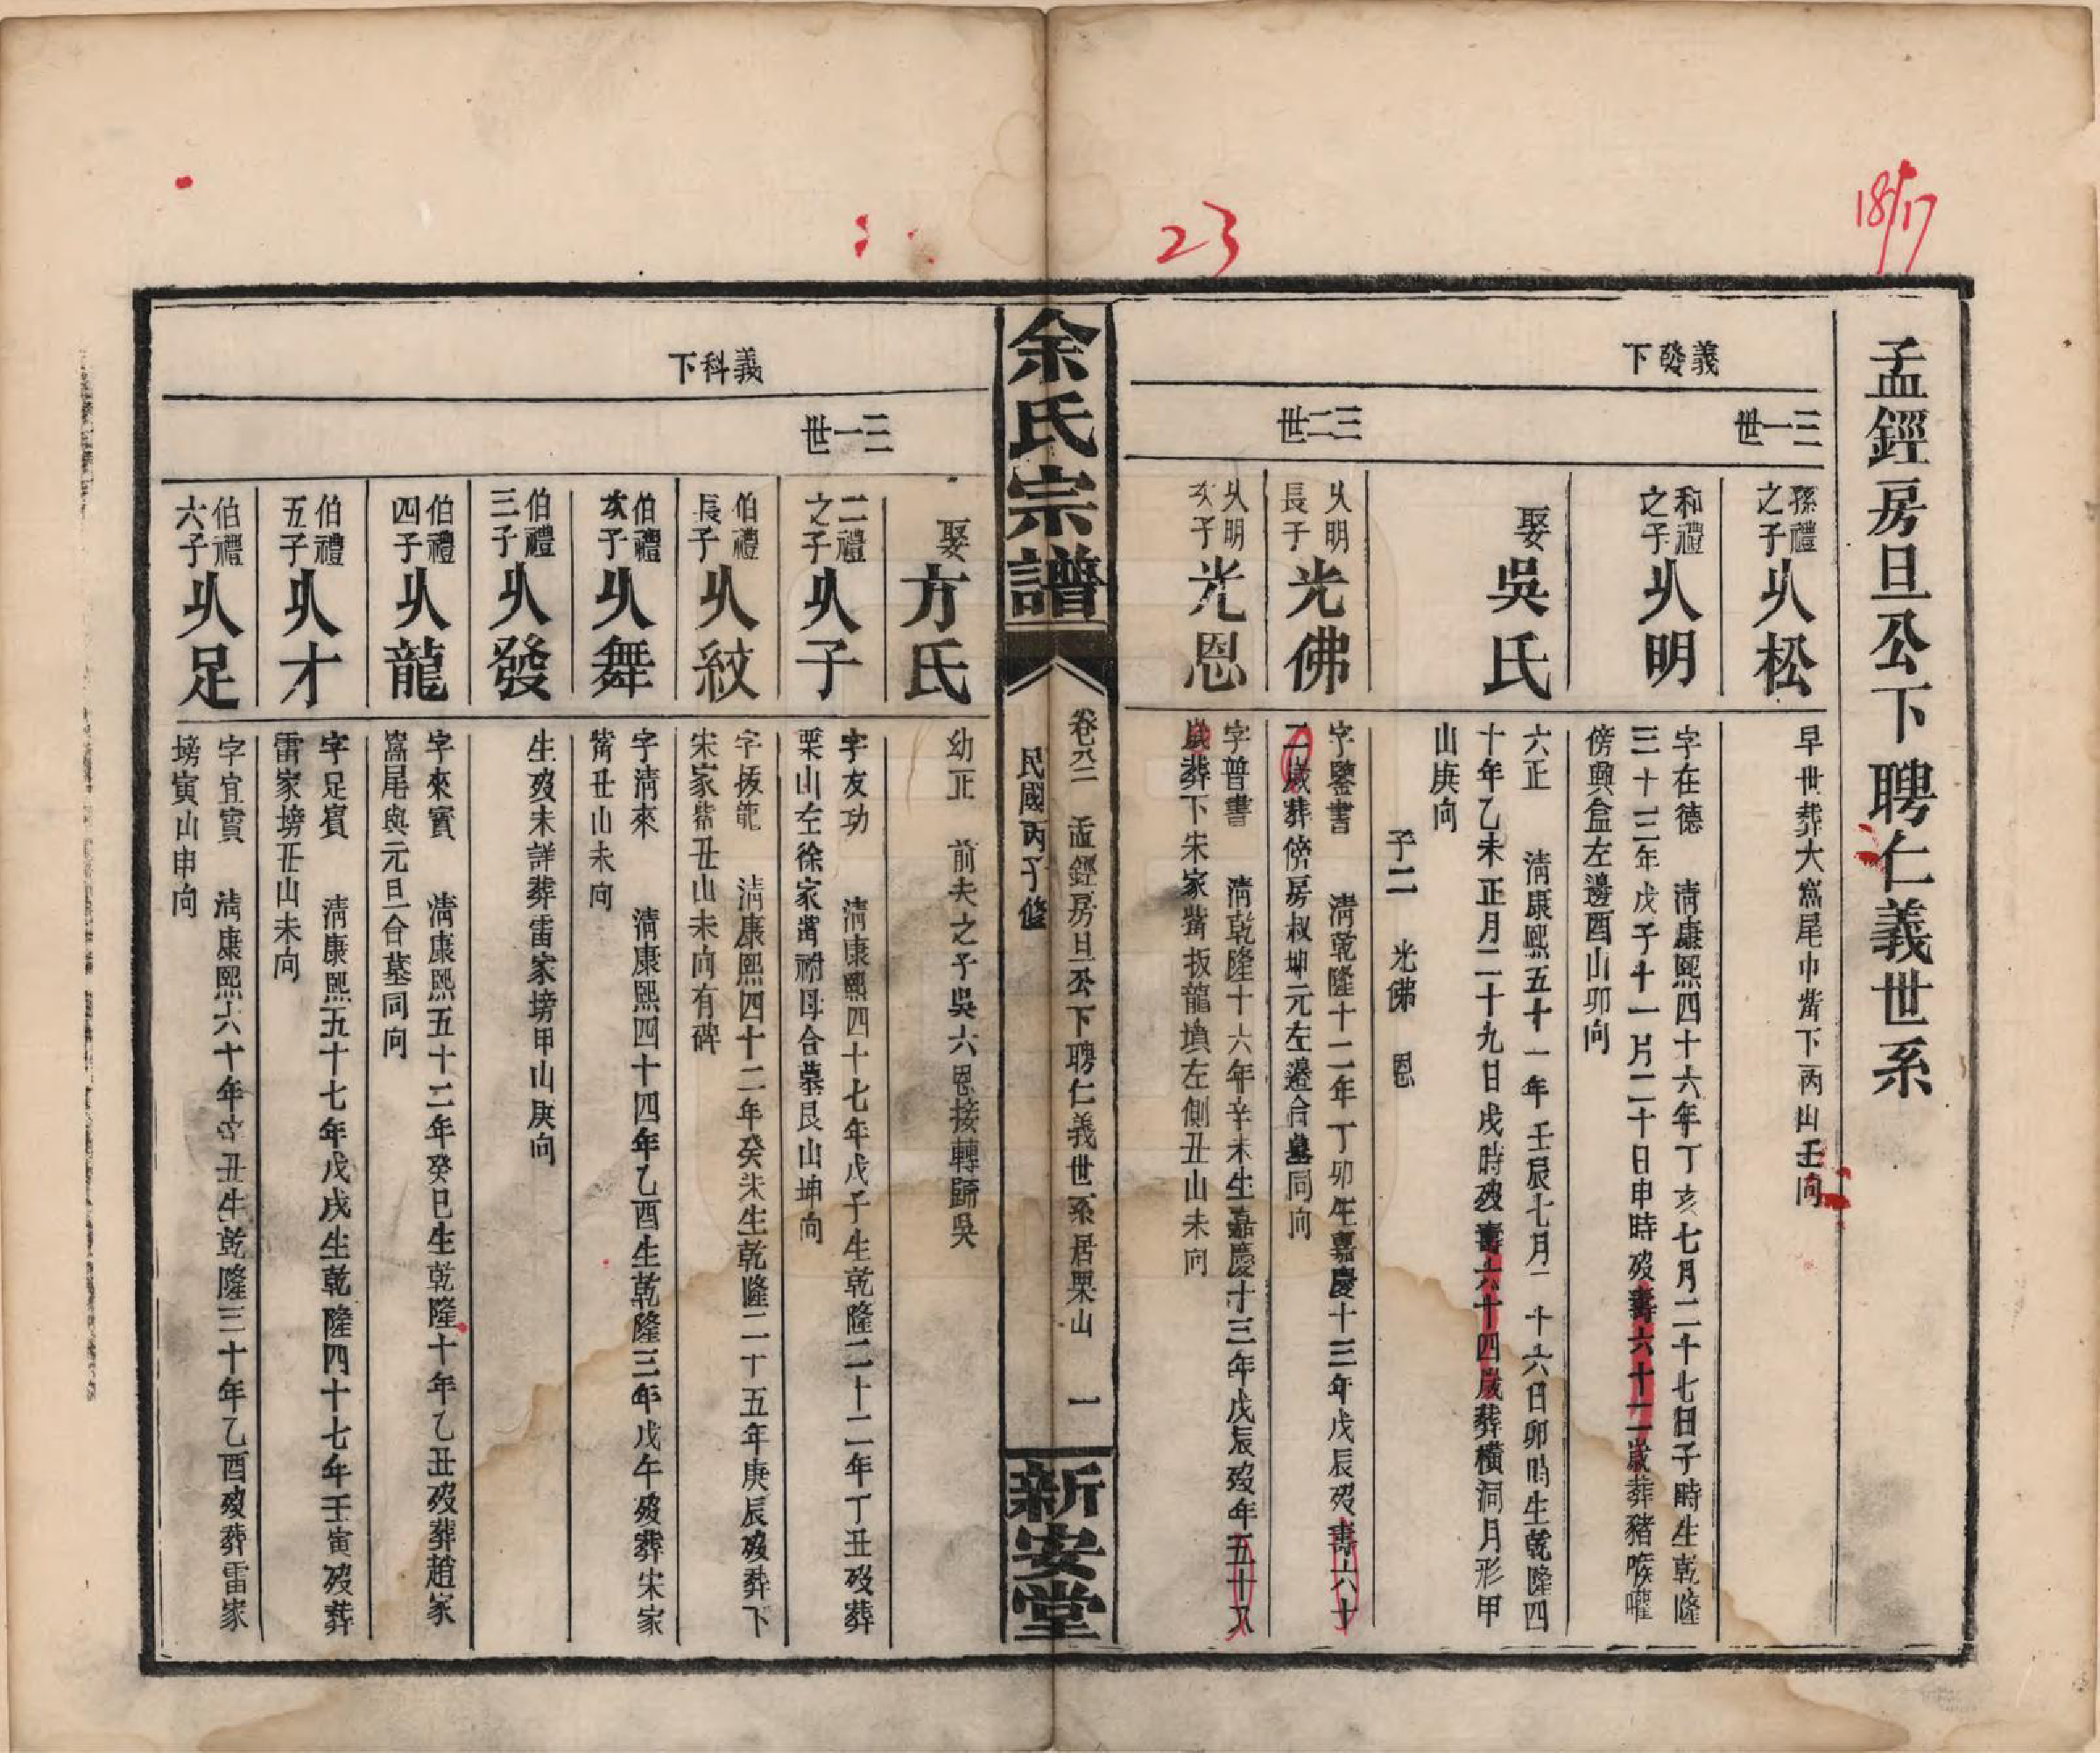 18/17
23
孟鏗房旦公下聘仁義世系
義發下
三一世
孫禮之子㕥松
早世葬大窩尾巾嘴下丙山壬向
和禮之子㕥明
字在德 清康熙四十六年丁亥七月二十七日子時生乾隆
三十三年戊子十一月二十日申時歿壽六十二歲葬豬喉嚾
傍興盒左邊酉山卯向
娶吳氏
六正 清康熙五十一年壬辰七月二十六日卯時生乾隆四
十年乙未正月二十九日戌時歿壽六十四歲葬橫洞月形甲
山庚向
子二 光佛 恩
三二世
㕥明長子光佛
字鑒書 清乾隆十二年丁卯生嘉慶十三年戊辰歿壽六十
二歲葬傍房叔坤元左邊合墓同向
㕥明次子光恩
字普書 清乾隆十六年辛未生嘉慶十三年戊辰歿年五十八
歲葬下朱家嘴扳龍墳左側丑山未向
余氏宗譜
卷之二 孟鏗房旦公下聘仁義世系居栗山 一
民國丙子修
新安堂
娶方氏
幼正 前夫之子吳六恩接轉歸吳
義科下
三一世
二禮之子㕥子
字友功 清康熙四十七年戊子生乾隆二十二年丁丑歿葬
栗山左徐家嘴祔母合墓艮山坤向
伯禮長子㕥紋
字扳龍 清康熙四十二年癸未生乾隆二十五年庚辰歿葬下
宋家嘴丑山未向有碑
伯禮次子㕥舞
字清來 清康熙四十四年乙酉生乾隆三年戊午歿葬宋家
嘴丑山未向
伯禮三子㕥發
生歿未詳葬雷家塝甲山庚向
伯禮四子㕥龍
字來賓 清康熙五十二年癸巳生乾隆十年乙丑歿葬趙家
嵩尾與元旦合墓同向
伯禮五子㕥才
字足賓 清康熙五十七年戊戌生乾隆四十七年壬寅歿葬
雷家塝丑山未向
伯禮六子㕥足
字宜賓 清康熙六十年辛丑生乾隆三十年乙酉歿葬雷家
塝寅山申向